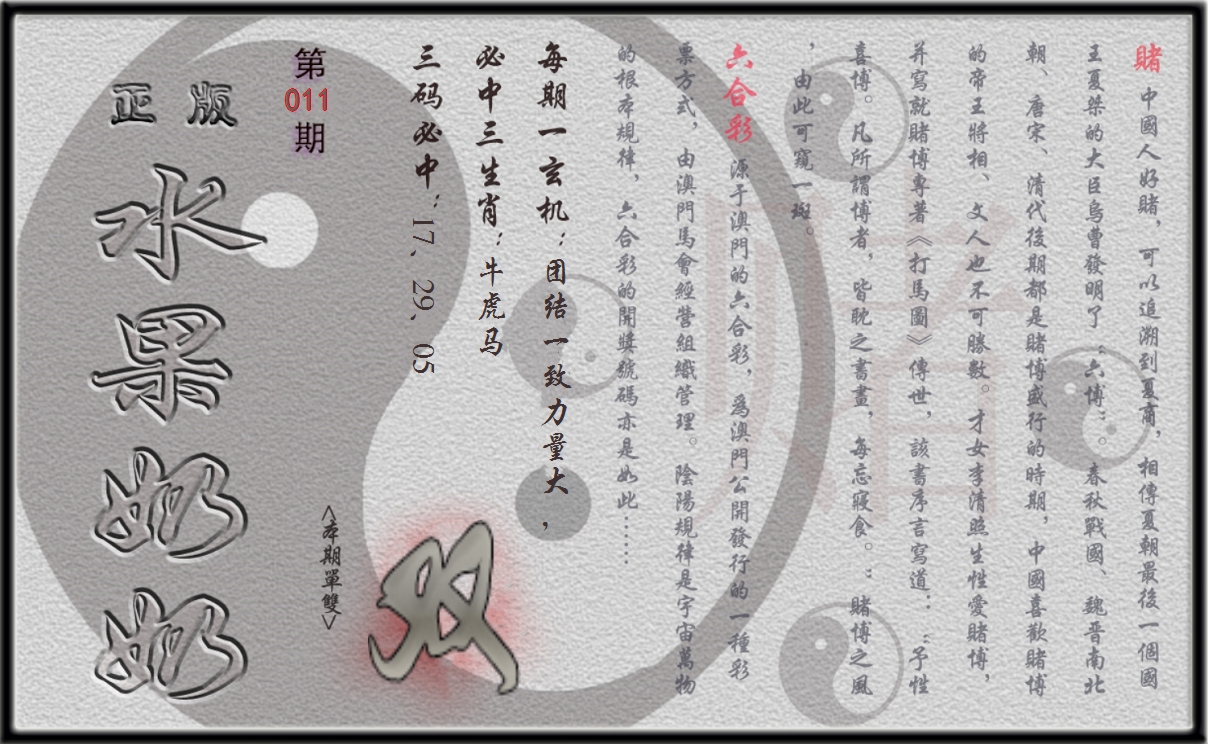 賭 中國人好賭，可以追溯到夏商，相傳夏朝最後一個國
王夏桀的大臣烏曹發明了“六博”。春秋戰國、魏晉南北
朝、唐宋、清代後期都是賭博盛行的時期，中國喜歡賭博
的帝王將相、文人也不可勝數。才女李清照生性愛賭博，
并寫就賭博專著《打馬圖》傳世，該書序言寫道：“予性
喜博。凡所謂博者，皆耽之書畫，每忘寢食。：賭博之風
，由此可窺一斑。
六合彩 源于澳門的六合彩，爲澳門公開發行的一種彩
票方式，由澳門馬會經營組織管理。陰陽規律是宇宙萬物
的根本規律，六合彩的開獎號碼亦是如此……
每期一玄机：团结一致力量大，
必中三生肖：牛虎马
三码必中：17、29、05
双
<本期單雙>
第
011
期
正版
水果奶奶
赌